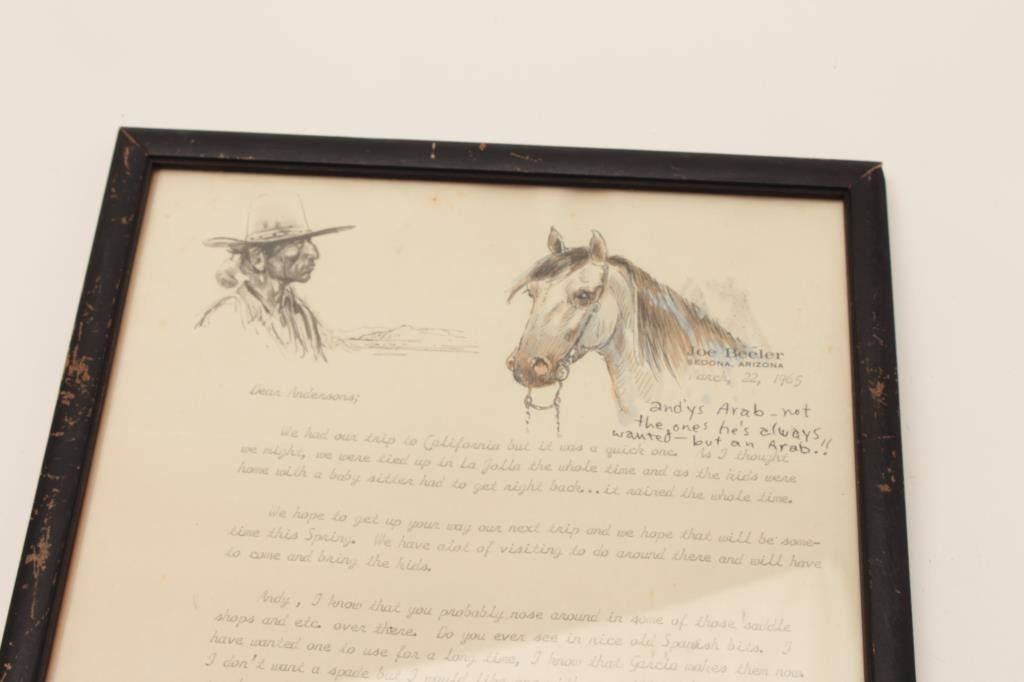 Joe Beeler
SEDONA, ARIZONA
March, 22, 1965
Dear Andersons;
andys Arab - not
the ones he's always
wanted - but an Arab..!!
We had our trip to California but it was a quick one. As I thought
we might, we were tied up in La Jolla the whole time and as the kids were
home with a baby sitter had to get right back...it rained the whole time.
We hope to get up your way our next trip and we hope that will be some-
time this Spring. We have alot of visiting to do around there and will have
to come and bring the kids.
Andy, I know that you probably nose around in some of those saddle
shops and etc. over there. Do you ever see in nice old Spanish bits. I
have wanted one to use for a long time, I know that Garcia makes them now
I don't want a spade but I would like